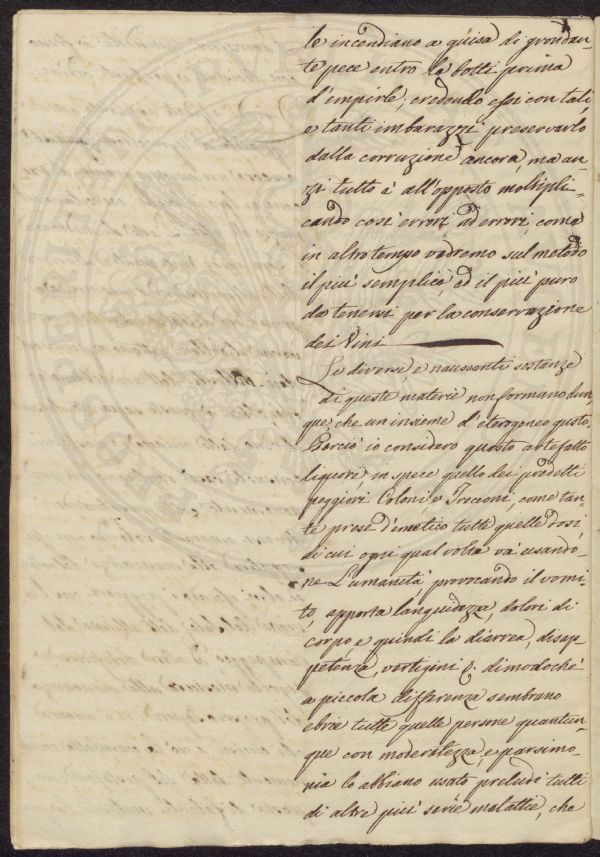 le incendiano a guisa di grondan-
te pece entro le botti prima
d'empirle; credendo essi con tali,
e tanti imbarazzi preservarlo
dalla corruzione ancora, ma an-
zi tutto è all'opposto moltipli-
cando così errori ad errori, come
in altro tempo vedremo sul metodo
il più semplice, ed il più puro
da tenersi per la conservazione
dei Vini
Le diverse, e nauseanti sostanze
di queste materie non formano dun
que, che un insieme d'eterogeneo gusto.
Perciò io considero questo artefatto
liquore, in spece quello dei predetti
peggiori Coloni, e Trecconi, come tan-
te prese d'emetico tutte quelle dosi,
di cui ogni qual volta và usando-
ne L'umanità provocando il vomi-
to, apporta languidezza, dolori di
corpo e quindi la diarrea, disap-
petenza, vertigini &. dimodoché
a piccola differenza sembrano
ebrie tutte quelle persone quantun-
que con moderatezza, e parsimo-
nia lo abbiano usato preludi tutti
di altre più serie malattie, che